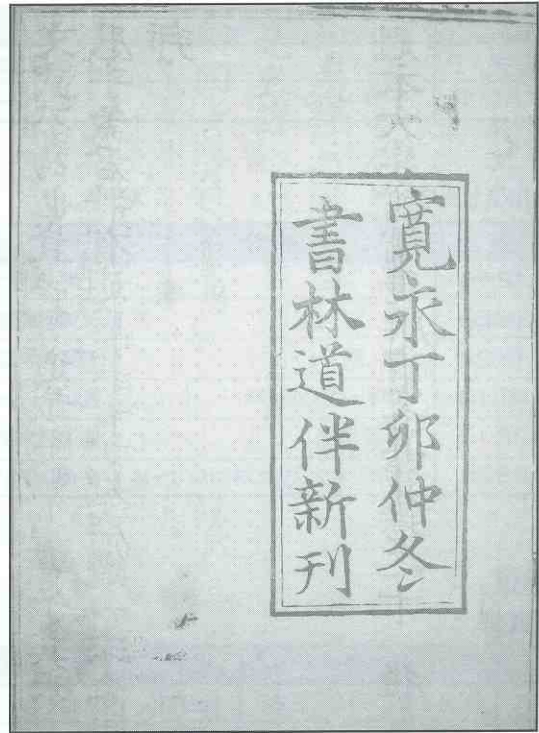 寛永丁卯仲冬
書林道伴新刊